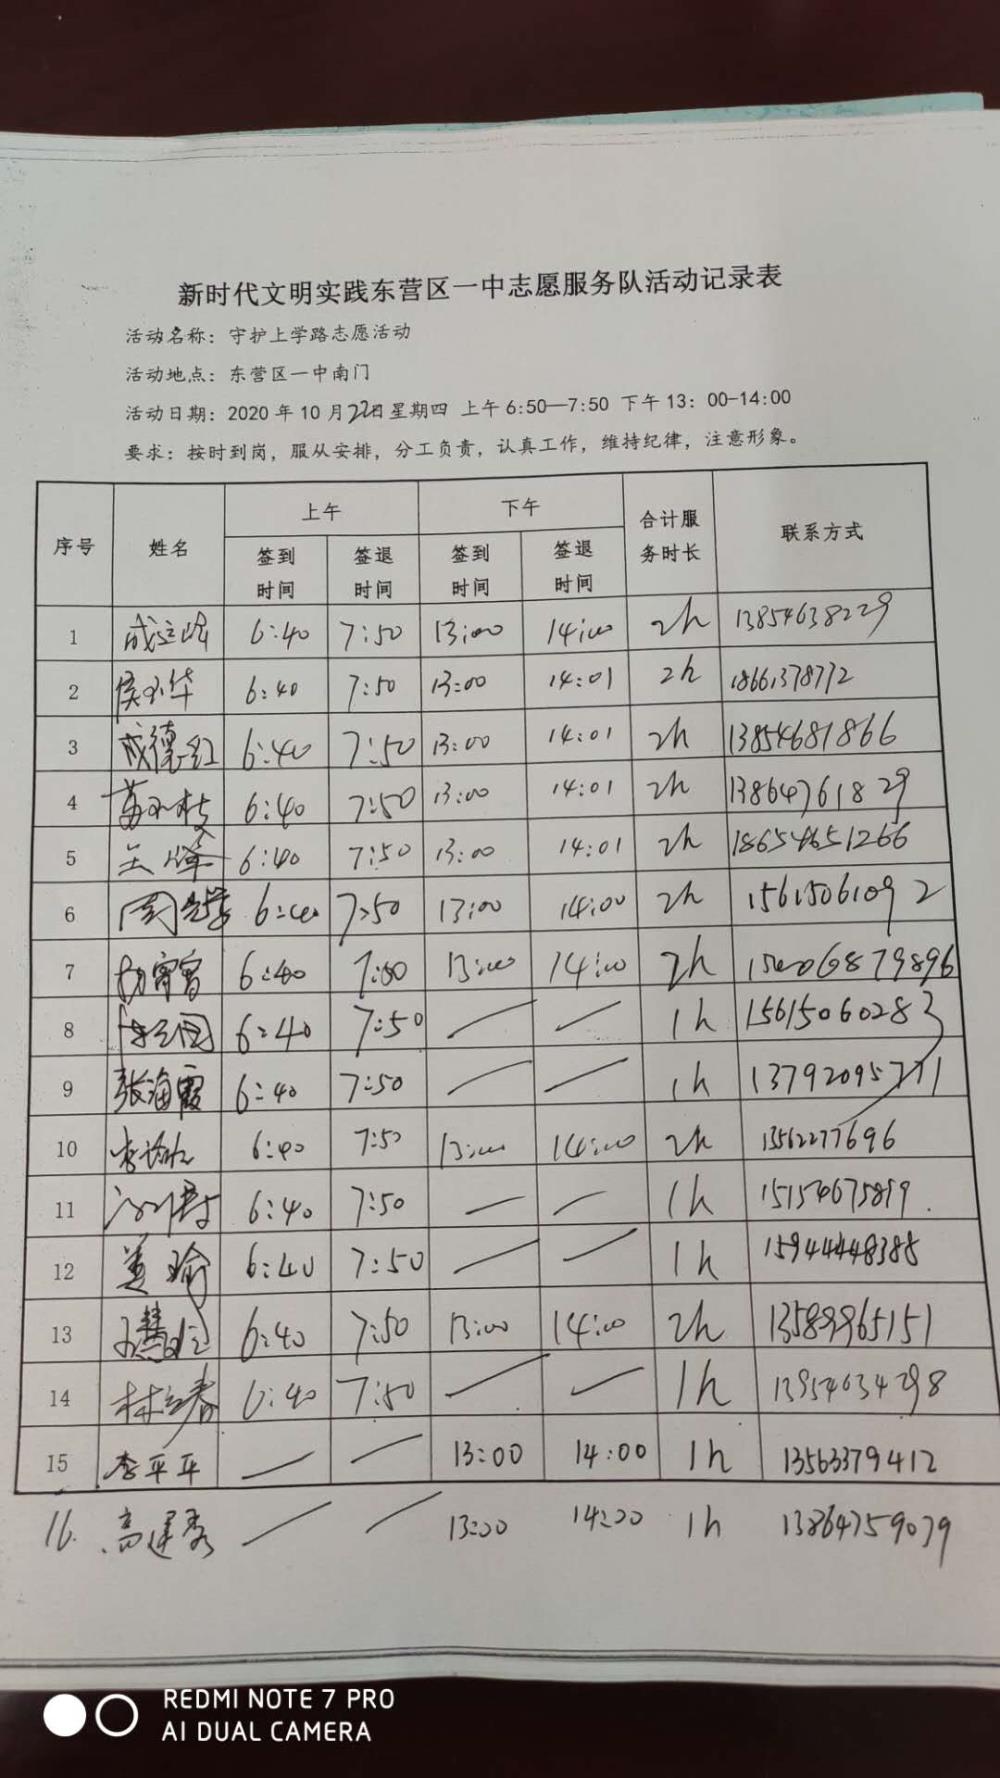 新时代文明实践东营区一中志愿服务队活动记录表
活动名称：守护上学路志愿活动
活动地点：东营区一中南门
活动日期：2020 年 10 月 22日星期四 上午 6:50—7:50 下午 13：00-14:00
要求：按时到岗，服从安排，分工负责，认真工作，维持纪律，注意形象。
序号 姓名 上午 下午 合计服务时长 联系方式
签到时间 签退时间 签到时间 签退时间
1 6:40 7:50 13:00 14:00 2h 13854638229
2 6:40 7:50 13:00 14:01 2h 18661378772
3 成德红 6:40 7:50 13:00 14:01 2h 13854681866
4 6:40 7:50 13:00 14:01 2h 13864761829
5 6:40 7:50 13:00 14:01 2h 18654651266
6 6:40 7:50 13:00 14:00 2h 15615061092
7 6:40 7:50 13:00 14:00 2h
8 6:40 7:50 — — 1h 15615060283
9 张海霞 6:40 7:50 — — 1h 13792095771
10 6:40 7:50 13:00 14:00 2h 13562277696
11 6:40 7:50 — — 1h 15154675819.
12 姜瑜 6:40 7:50 — — 1h 15944448385
13 6:40 7:50 13:00 14:00 2h 13589965151
14 林立春 6:40 7:50 — — 1h 13954634298
15 李平平 — — 13:00 14:00 1h 13563379412
16. 高建秀 — — 13:00 14:00 1h 13864759079
REDMI NOTE 7 PRO
AI DUAL CAMERA